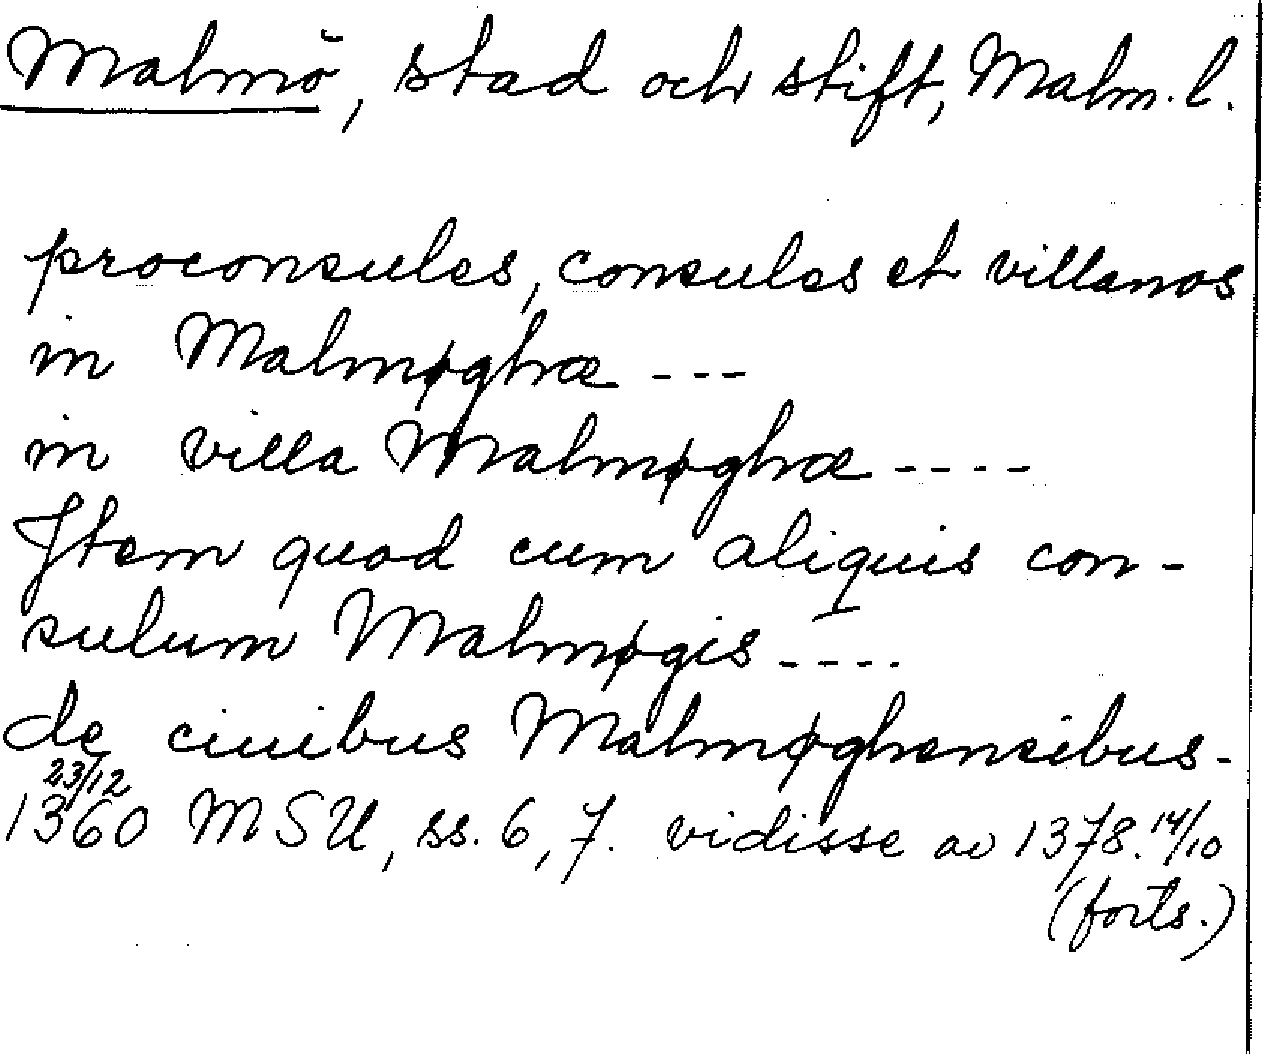 Malmö, stad och stift, Malm. l.
proconsules, consules et villanos
in Malmøghæ ---
in villa Malmøghæ ----
Item quod cum aliquis con-
sulum Malmøgis ----
de ciuibus Malmøghensibus.
23/12
1360 MSU, ss. 6, 7. vidisse av 1378. 14/10
(forts.)